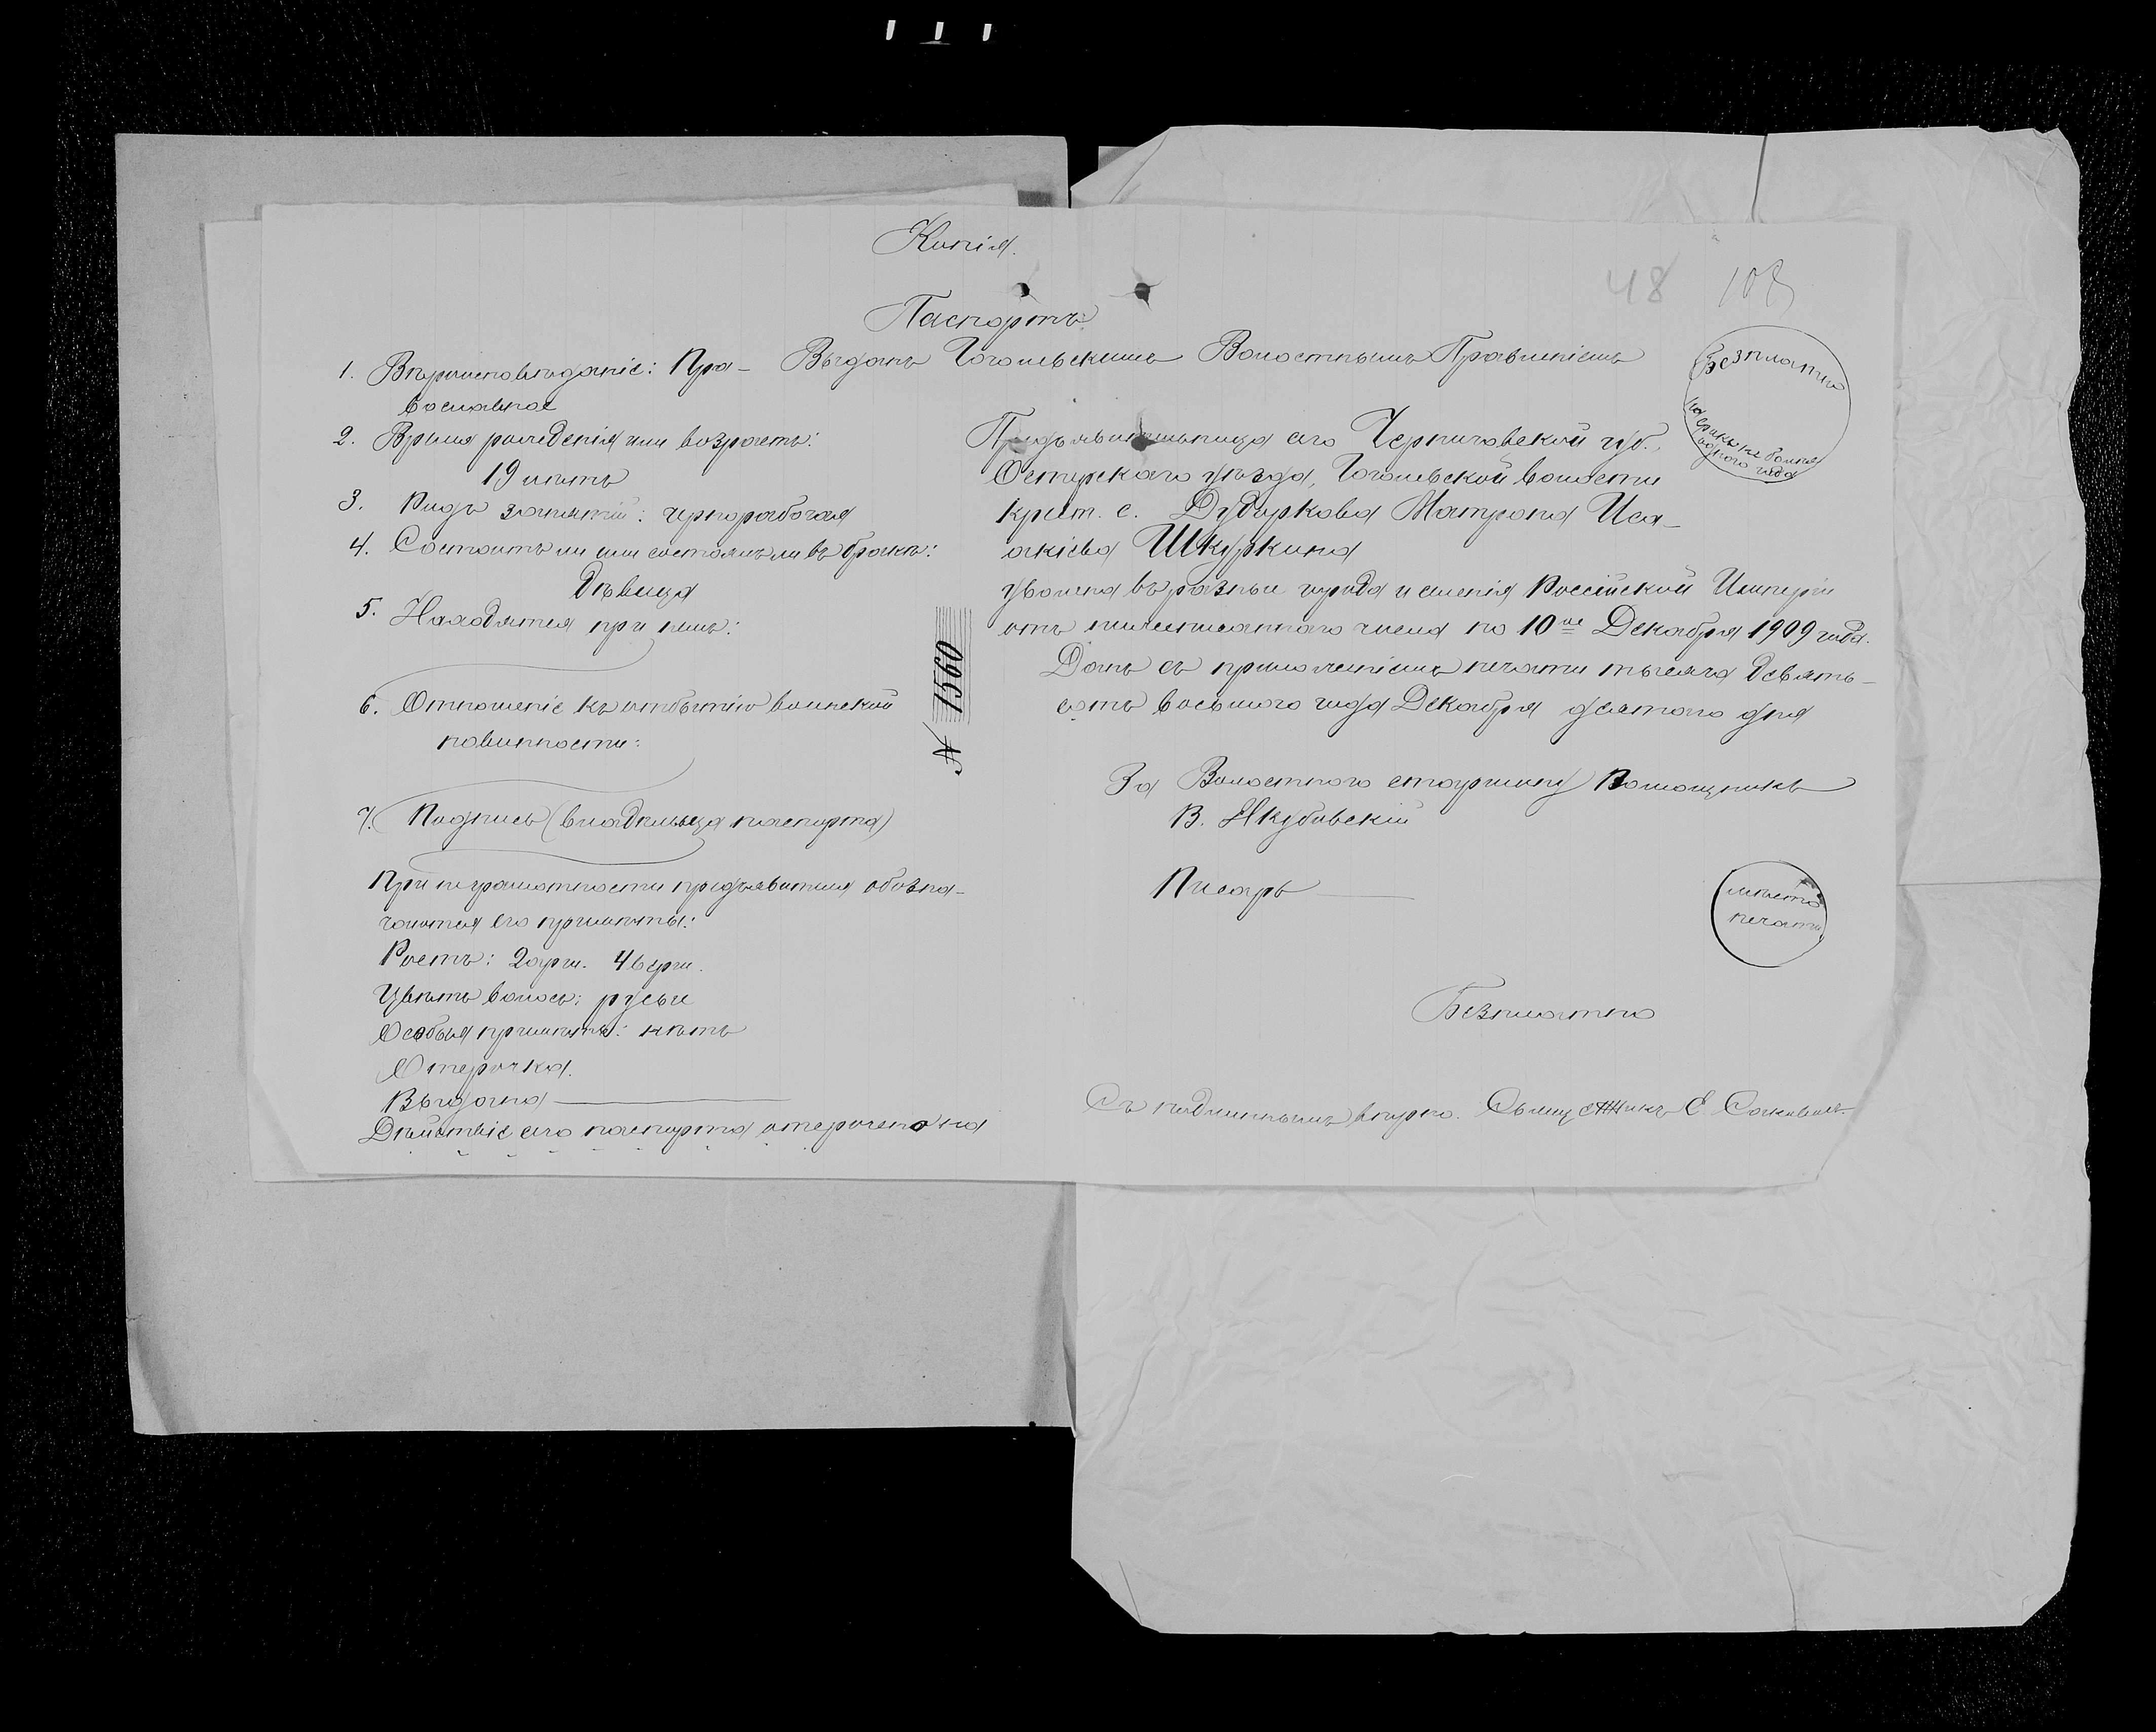 Копія.
48 108
Паспортъ
Выданъ Гоголевскимъ Волостнымъ Правленіемъ
Безплатно
на срокъ не болѣе
одного года
1. Вѣроисповѣданіе: Пра-
вославное
2. Время рожденія или возрастъ:
19 лѣтъ
3. Родъ занятій: чернорабочая
4. Состоитъ ли или состоялъ ли въ бракѣ:
Дѣвица
5. Находятся при немъ:
6. Отношеніе къ отбытію воинской
повинности:
7. Подпись (владѣльца паспорта)
При неграмотности предъявителя обозна-
чаются его примѣты:
Ростъ: 2 арш. 4 верш.
Цвѣтъ волосъ: русые
Особыя примѣты: нѣтъ
Отсрочка.
Выдана
Дѣйствіе сего паспорта отсрочено на
№ 1560
Предъявительница сего Черниговской губ.,
Остерскаго уѣзда, Гоголевской волости
крест. с. Дударкова Матрона Иса-
акіева Шкуркина
уволена въ разные города и селенія Россійской Имперіи
отъ нижеписаннаго числа по 10ое Декабря 1909 года.
Данъ съ приложеніемъ печати тысяча девять-
сотъ восьмого года Декабря десятого дня
За Волостного старшину Помощникъ
В. Якубовскій
Писарь
мѣсто
печати
Безплатно
Съ подлиннымъ вѣрно. Е.